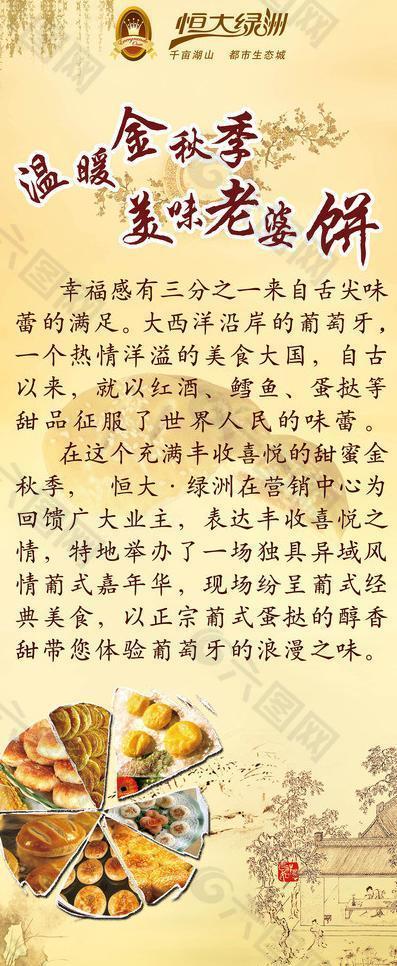 恒大绿洲
千亩湖山 都市生态城
温暖金秋季
美味老婆饼
幸福感有三分之一来自舌尖味
蕾的满足。大西洋沿岸的葡萄牙，
一个热情洋溢的美食大国，自古
以来，就以红酒、鳕鱼、蛋挞等
甜品征服了世界人民的味蕾。
在这个充满丰收喜悦的甜蜜金
秋季， 恒大·绿洲在营销中心为
回馈广大业主，表达丰收喜悦之
情，特地举办了一场独具异域风
情葡式嘉年华，现场纷呈葡式经
典美食，以正宗葡式蛋挞的醇香
甜带您体验葡萄牙的浪漫之味。